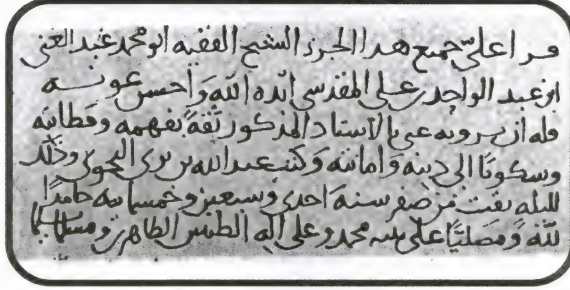 قرا علي جميع هذا الجزء الشيخ الفقيه ابو محمد عبد الغني
ابن عبد الواحد بن علي المقدسي ايده الله واحسن عونه
فله ان يرويه عني بالاسناد المذكور ثقة بفهمه وفطانته
وسكونا الى دينه وامانته وكتب عبد الله بن بري النحوي وذلك
لليلة بقيت من صفر سنة احدى وسبعين وخمسمايه حامدا
لله ومصليا على نبيه محمد وعلى اله الطيبين الطاهرين ومسلما